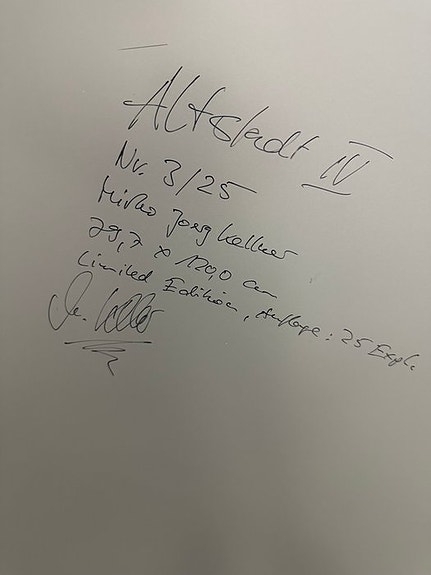 Altstadt IV
Nr. 3/25
Mirko Joerg Kellner
29,7 x 120,0 cm
Limited Edition, Auflage: 25 Expl.